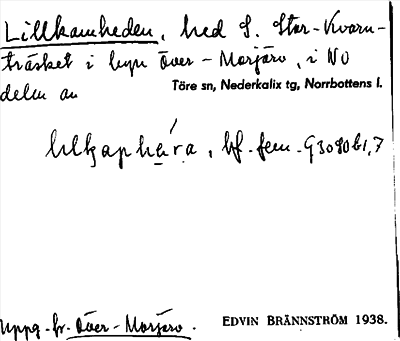 Lillkamheden, hed S. Stor-Kvarn-
träsket i byn Över-Morjärv, i NO
Töre sn, Nederkalix tg, Norrbottens l.
delen av
bf. fem. G3090b1,7
Uppg. fr. Över-Morjärv.
EDVIN BRÄNNSTRÖM 1938.